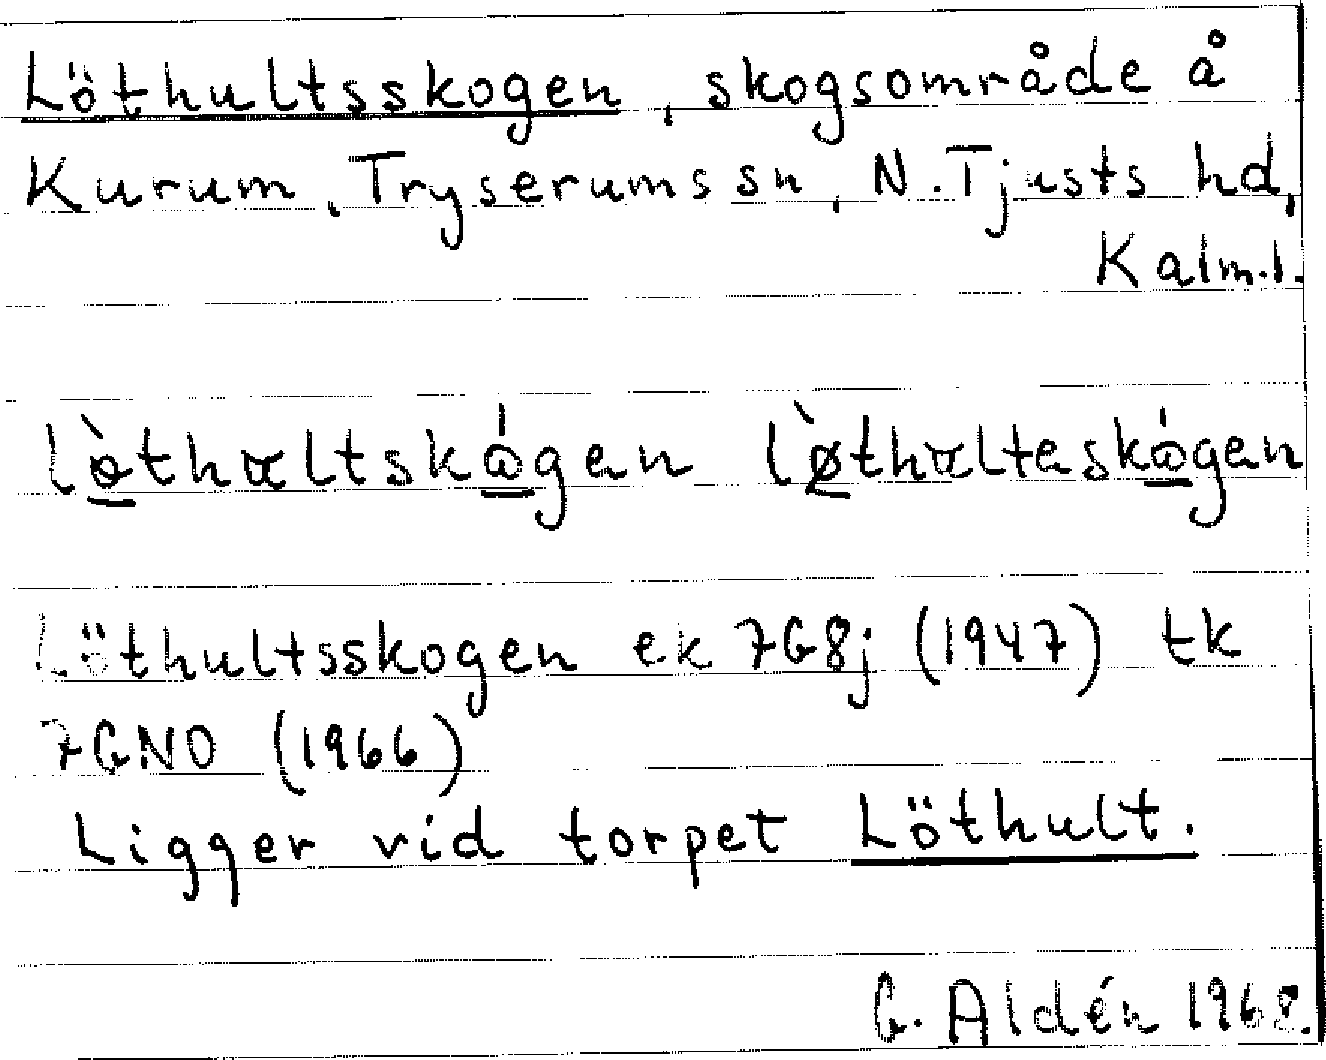 Löthultsskogen, skogsområde å
Kurum, Tryserums sn, N. Tjusts hd,
Kalm.l.
Löthultsskogen ek 7G8j (1947) tk
7GNO (1966)
Ligger vid torpet Löthult.
G. Aldén 1968.